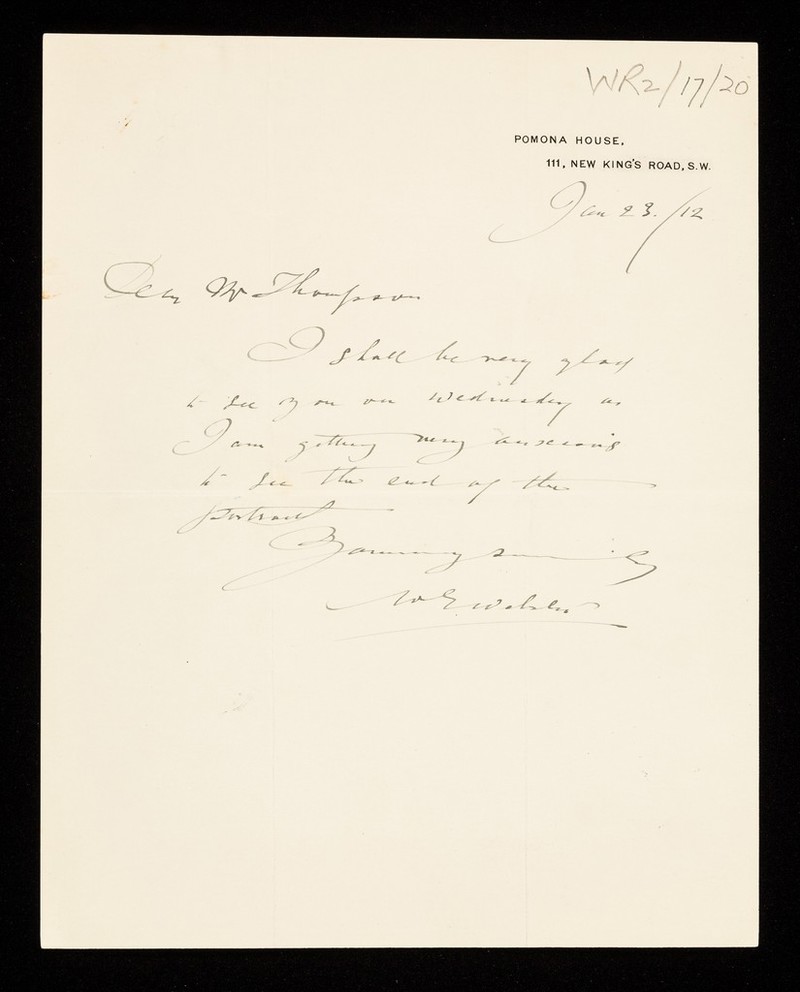 WR2/17/20
POMONA HOUSE,
111, NEW KING'S ROAD, S.W.
Jan 23. /12
Dear Mr Thompson
I shall be very glad
to see you on Wednesday as
I am getting very anxious
to see the end of the
portrait
Yours very sincerely
W E Webster